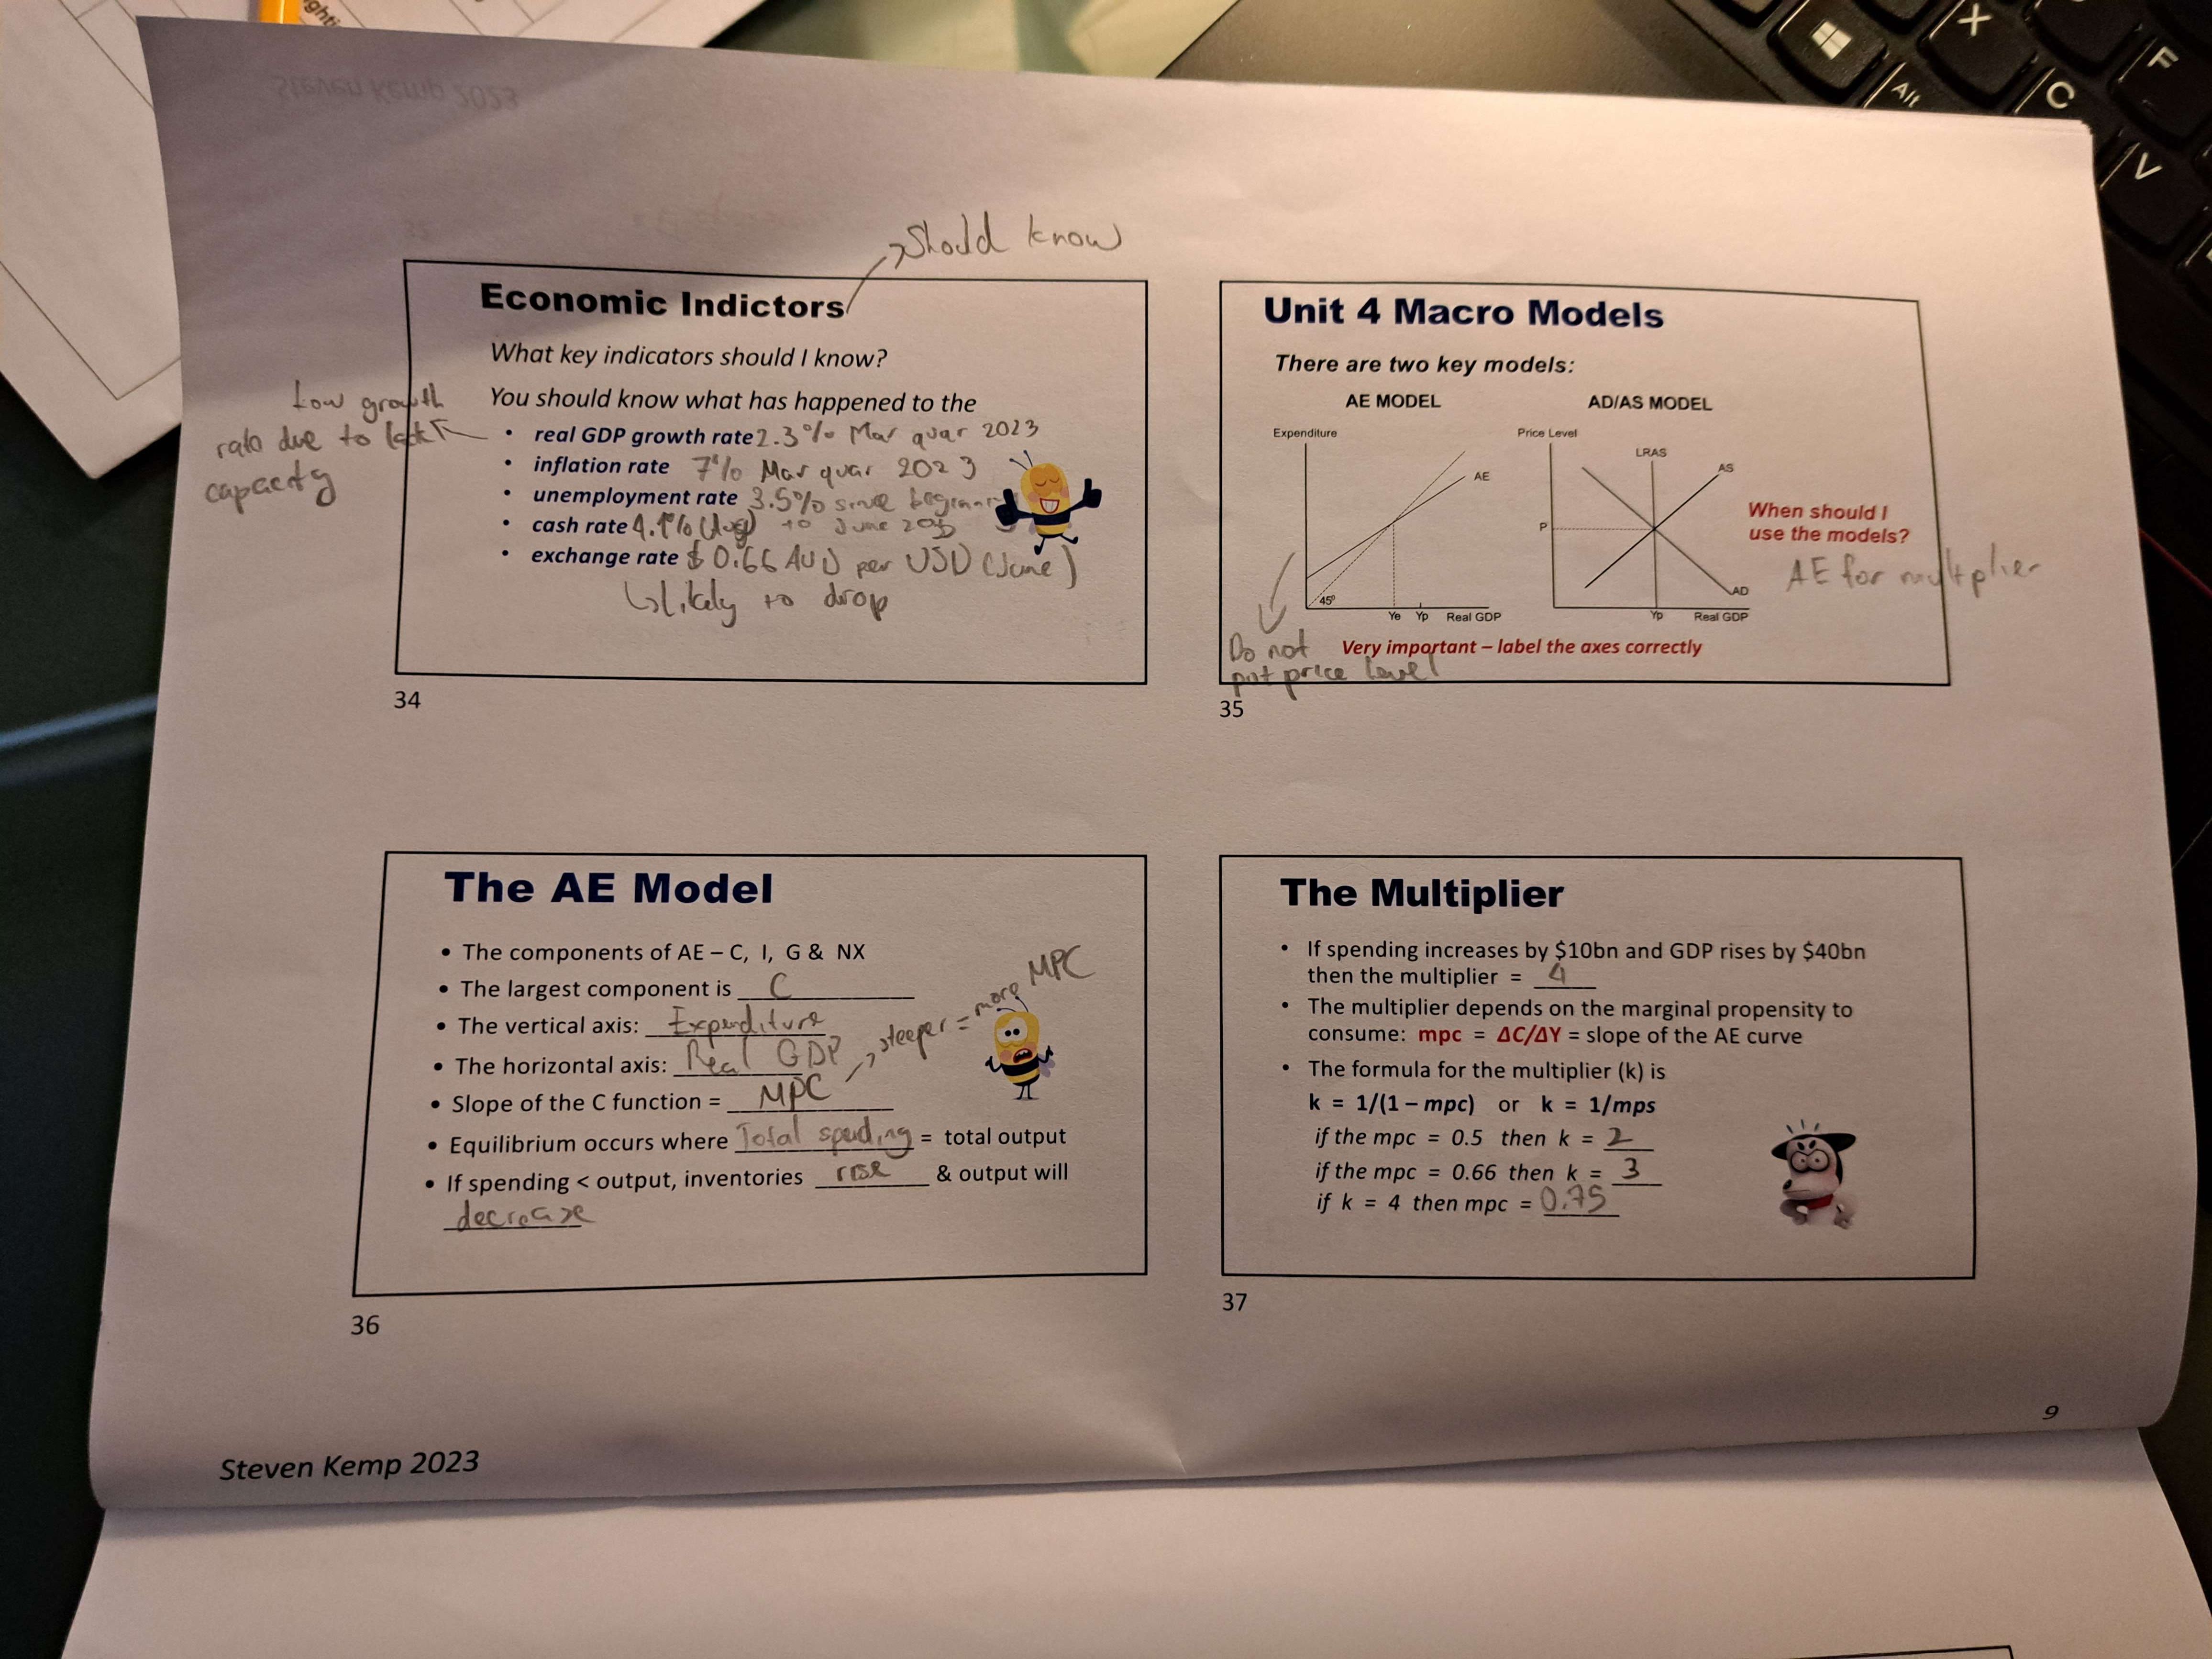 Steven Kemp 2023
should know
Economic Indictors
What key indicators should I know?
You should know what has happened to the
• real GDP growth rate 2.3% Mar quar 2023
• inflation rate 7% Mar quar 2023
• unemployment rate 3.5% since beginning
• cash rate 4.1% (Aug) to June 2023
• exchange rate $0.66 AUD per USD (June)
likely to drop
Low growth
rate due to lack
capacity
34
Unit 4 Macro Models
There are two key models:
AE MODEL
Expenditure
AE
45°
Ye Yp Real GDP
AD/AS MODEL
Price Level
LRAS
AS
P
AD
Yp Real GDP
When should I
use the models?
AE for multplier
Do not
put price level
Very important – label the axes correctly
35
The AE Model
• The components of AE – C, I, G & NX
• The largest component is C
• The vertical axis: Expenditure
• The horizontal axis: Real GDP
• Slope of the C function = MPC
steeper = more MPC
• Equilibrium occurs where Total spending = total output
• If spending < output, inventories rise & output will
decrease
36
The Multiplier
• If spending increases by $10bn and GDP rises by $40bn
then the multiplier = 4
• The multiplier depends on the marginal propensity to
consume: mpc = ΔC/ΔY = slope of the AE curve
• The formula for the multiplier (k) is
k = 1/(1 – mpc) or k = 1/mps
if the mpc = 0.5 then k = 2
if the mpc = 0.66 then k = 3
if k = 4 then mpc = 0.75
37
9
Steven Kemp 2023
Alt
X
C
F
V